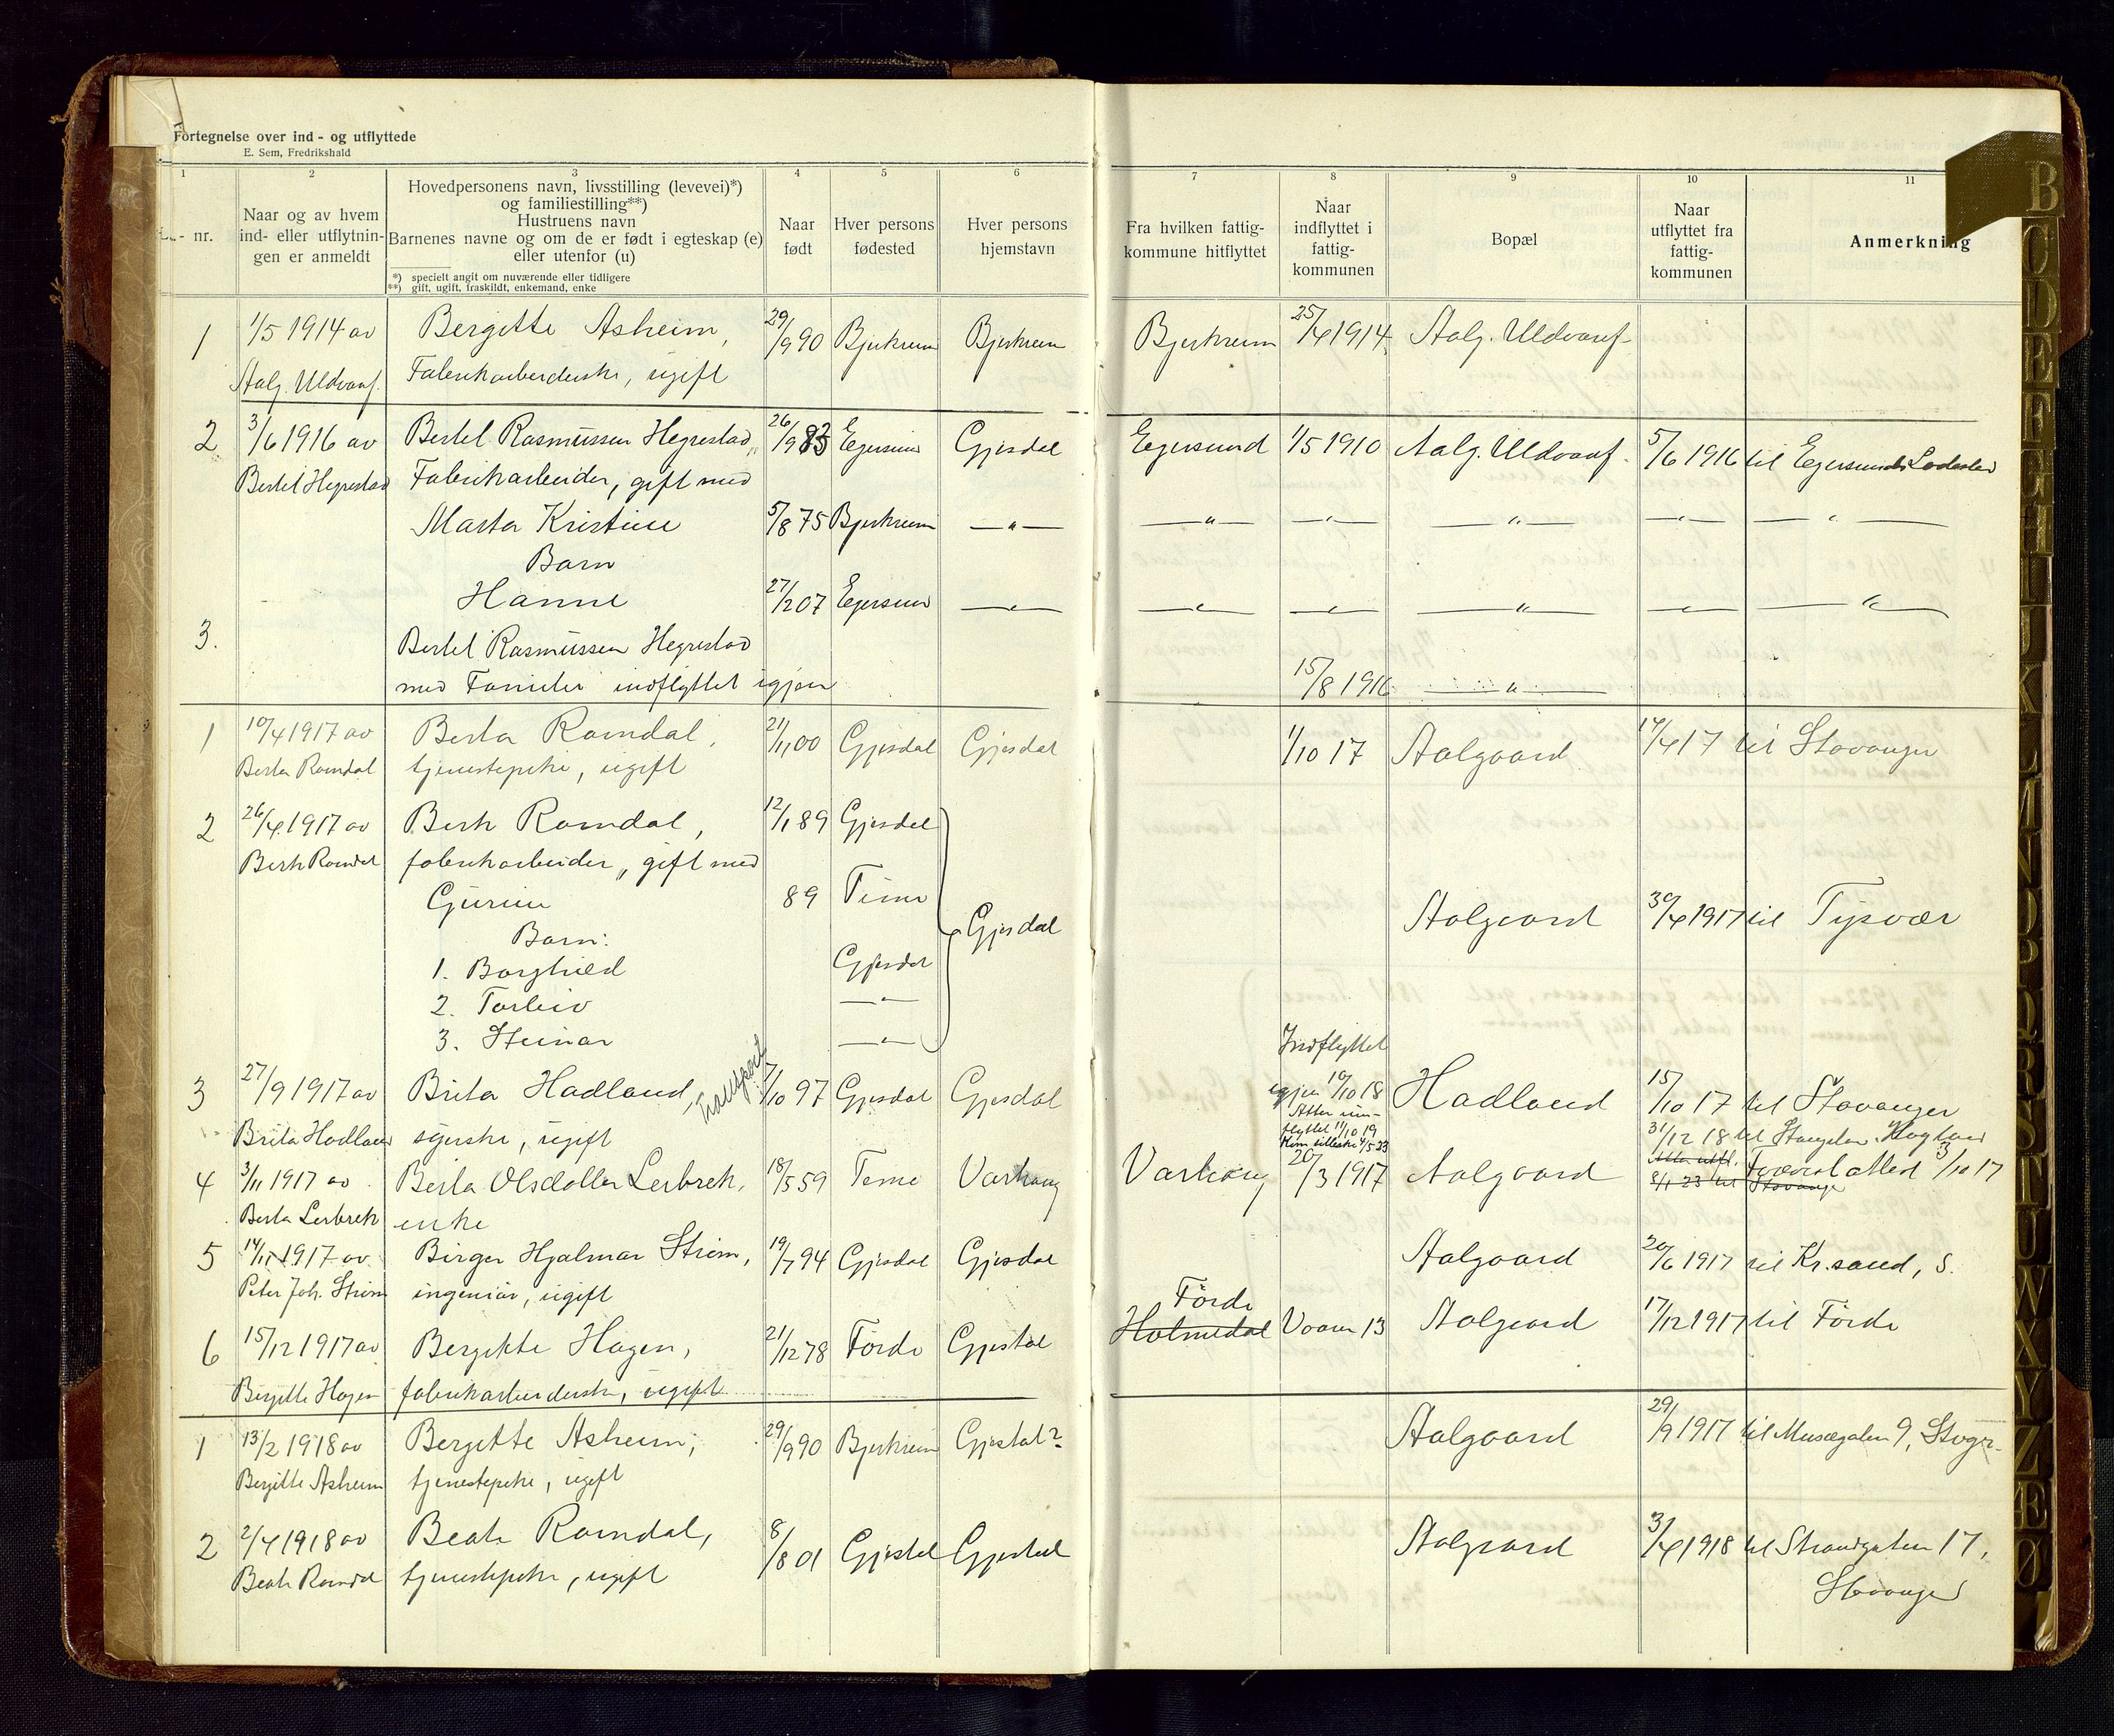 Fortegnelse over ind - og utflyttede
E. Sem, Fredrikshald
1 2 3 4 5 6 7 8 9 10 11
L.- nr.
Naar og av hvem
ind- eller utflytnin-
gen er anmeldt
Hovedpersonens navn, livsstilling (levevei)*)
og familiestilling**)
Hustruens navn
Barnenes navne og om de er født i egteskap (e)
eller utenfor (u)
*) specielt angit om nuværende eller tidligere
**) gift, ugift, fraskildt, enkemand, enke
Naar
født
Hver persons
fødested
Hver persons
hjemstavn
Fra hvilken fattig-
kommune hitflyttet
Naar
indflyttet i
fattig-
kommunen
Bopæl
Naar
utflyttet fra
fattig-
kommunen
Anmerkning
1 1/5 1914 av Bergitte Asheim, 29/9 90 Bjerkreim Bjerkreim Bjerkreim 25/4 1914 Aalg. Uldvaref.
Aalg. Uldvaref. Fabrikarbeiderske, ugift
2 3/6 1916 av Bertel Rasmussen Hegrestad, 26/9 83 Egersund Gjesdal Egersund 1/5 1910 Aalg. Uldvaref. 5/6 1916 til Egersunds Ladested
Bertel Hegrestad Fabrikarbeider, gift med
Marta Kristine 5/8 75 Bjerkreim —"— —"— —"— —"— —"— —"—
Barn
Hanne 27/2 07 Egersund —"— —"— —"— —"— —"— —"—
3. Bertel Rasmussen Hegrestad
med Familie indflyttet igjen 15/8 1916 —"—
1 10/4 1917 av Berta Ramdal, 21/11 00 Gjesdal Gjesdal 1/10 17 Aalgaard 14/4 17 til Stavanger
Berta Ramdal tjenestepike, ugift
2 26/4 1917 av Berte Ramdal, 12/1 89 Gjesdal
Berte Ramdal fabrikarbeider, gift med
Gurine 89 Time
Gjesdal Aalgaard 30/4 1917 til Tysvær
Barn:
1. Borghild Gjesdal
2. Torleiv —"—
3. Steinar —"—
Indflyttet
3 27/9 1917 av Brita Hadland, 7/10 97 Gjesdal Gjesdal igjen 10/10 18 Hadland 15/10 17 til Stavanger
Brita Hadland syerske, ugift
Atter inn-
flyttet 11/10 19
31/12 18 til
4 3/11 1917 av Berta Olsdatter Lerbrek, 18/5 59 Time Varhaug Varhaug 20/3 1917 Aalgaard Fraværsl. attest 3/10 17
Atter utfl.
8/1 23 til Stavanger
Berta Lerbrek enke
5 14/11 1917 av Birger Hjalmar Strøm, 19/7 94 Gjesdal Gjesdal Aalgaard 20/6 1917 til Kr.sand, S.
Peter Joh. Strøm ingeniør, ugift
Förde
6 15/12 1917 av Bergitte Hagen, 21/12 78 Förde Gjesdal Holmedal Vaaren 13 Aalgaard 17/12 1917 til Förde
Bergitte Hagen fabrikarbeiderske, ugift
1 13/2 1918 av Bergitte Asheim, 29/9 90 Bjerkreim Gjesdal? Aalgaard 29/9 1917 til Musegaten 9, Stvgr.
Bergitte Asheim tjenestepike, ugift
2 2/4 1918 av Beate Ramdal, 8/8 01 Gjesdal Gjesdal Aalgaard 3/4 1918 til Strandgaten 17,
Beate Ramdal tjenestepike, ugift Stavanger
B
C
D
E
F
G
H
I
J
K
L
M
N
O
P
Q
R
S
T
U
W
X
Y
Z
Æ
Ø